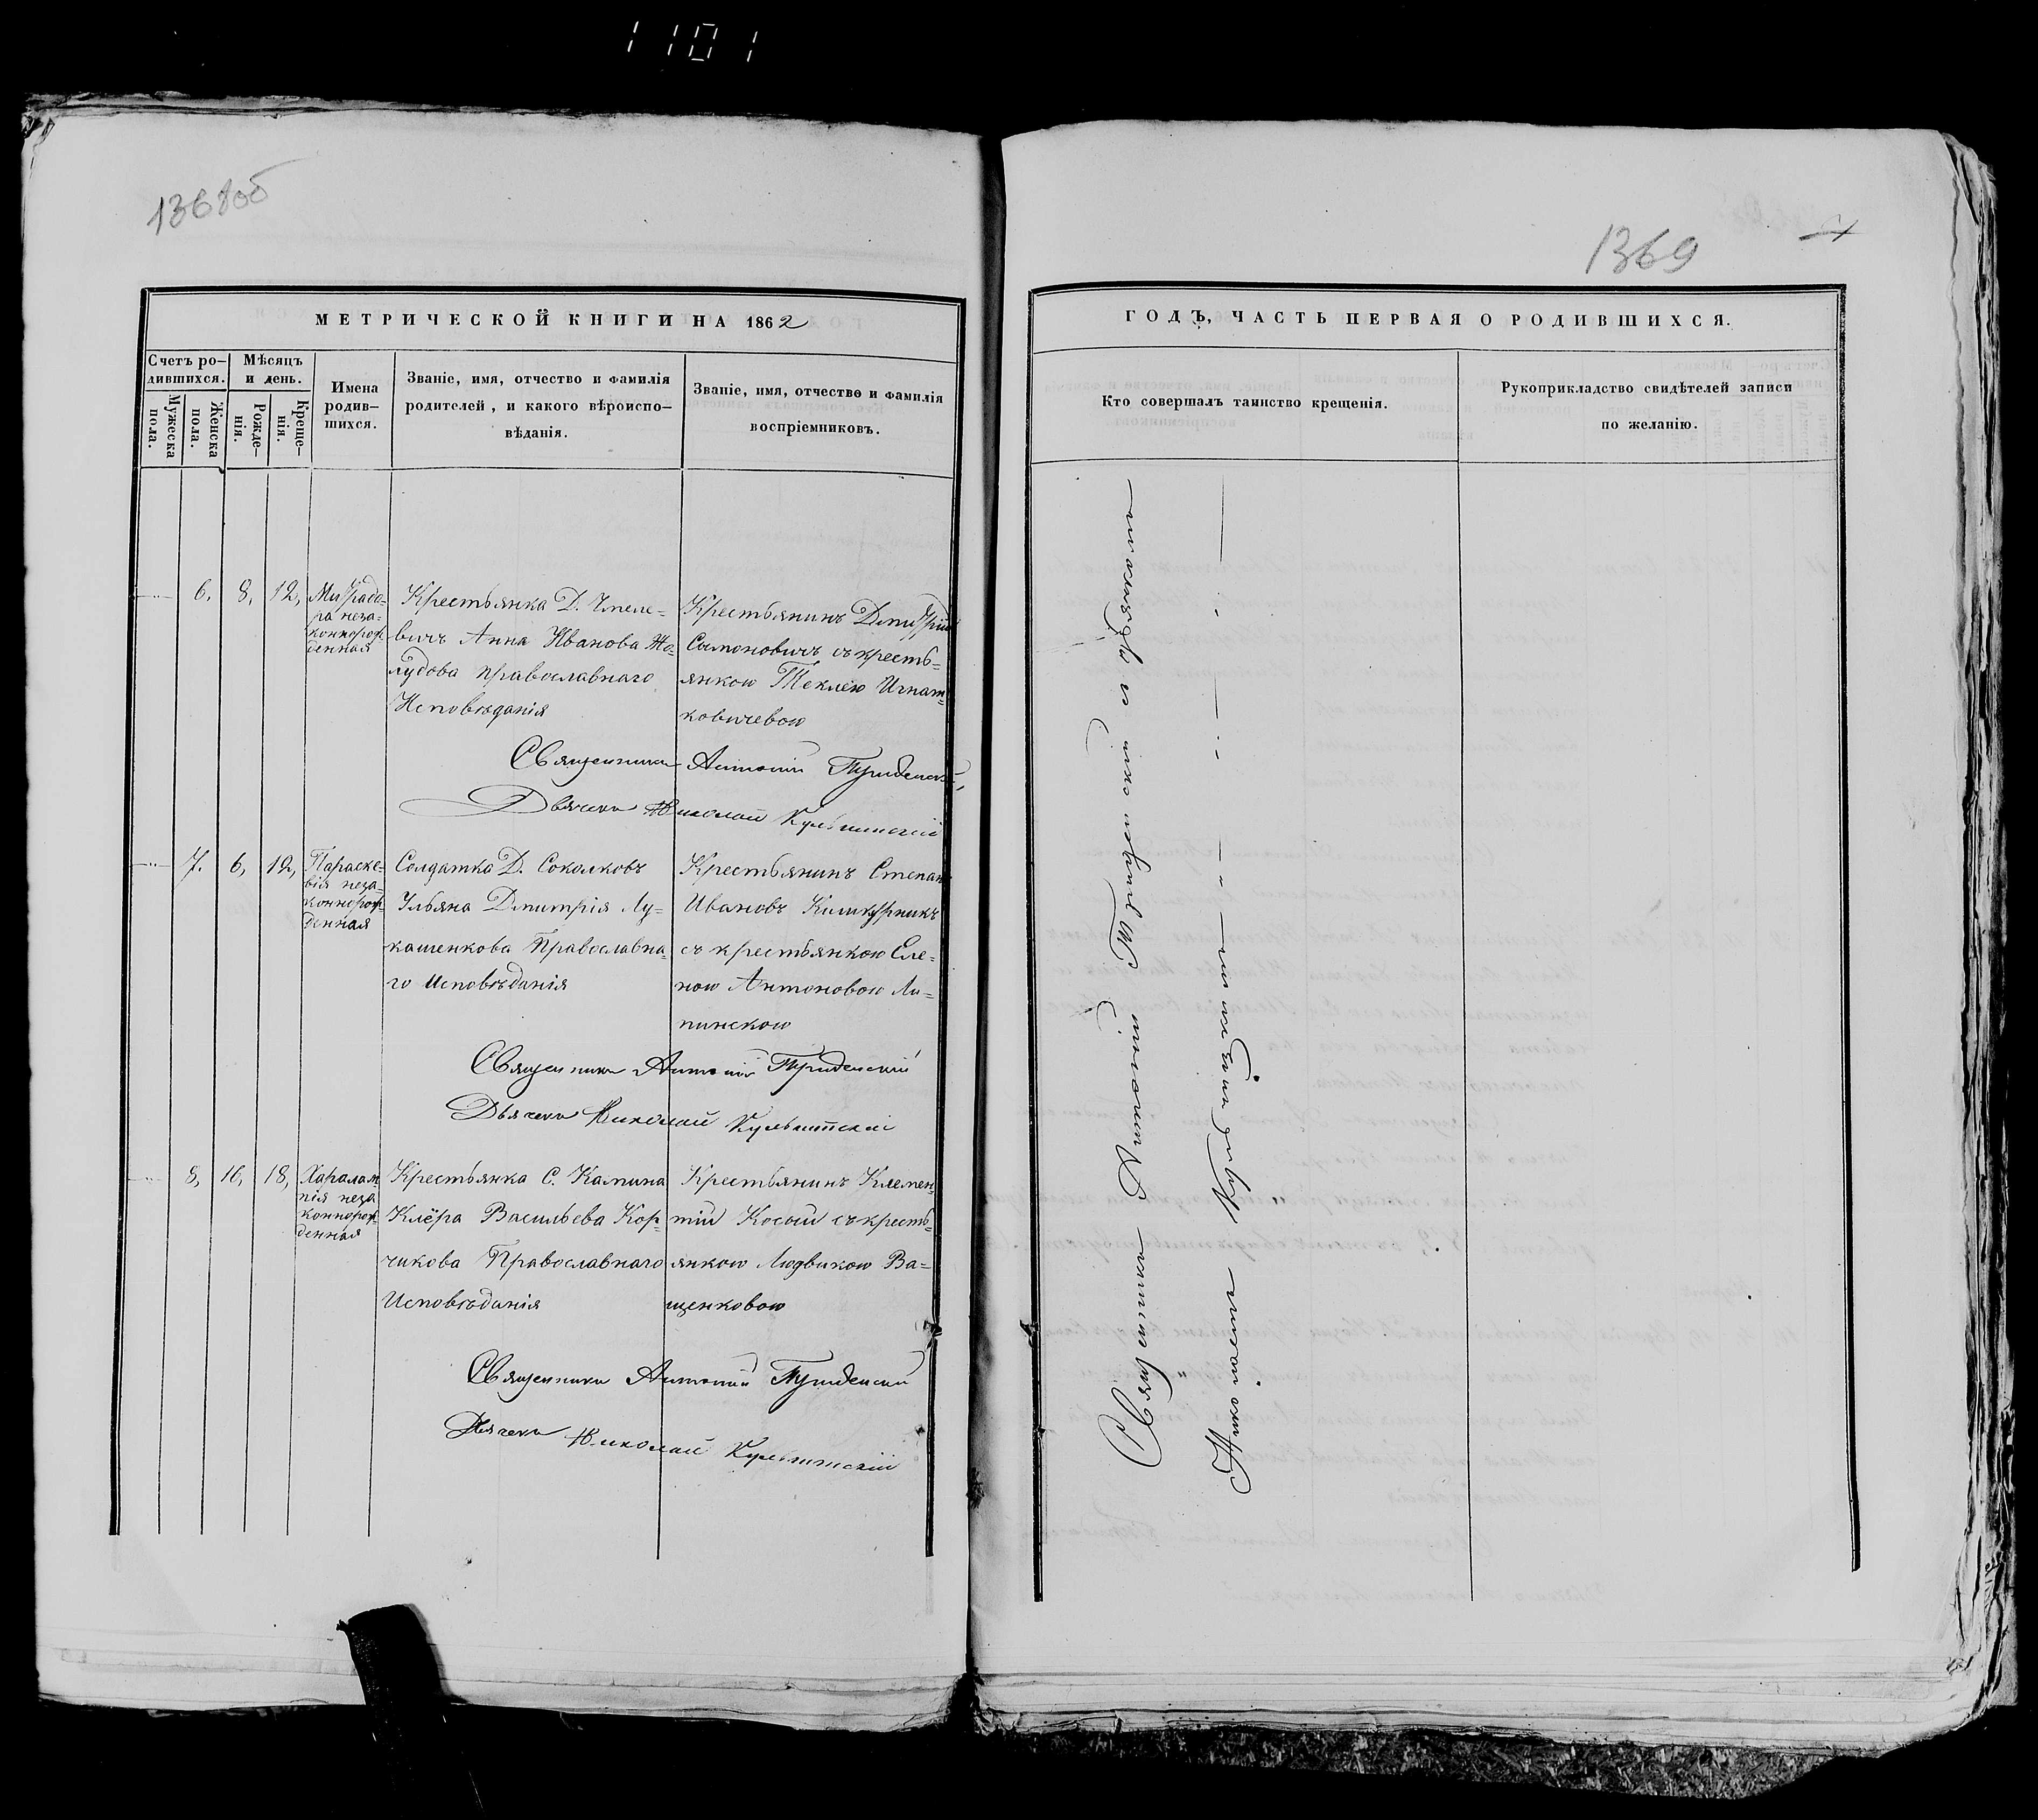 1101
1368об
МЕТРИЧЕСКОЙ КНИГИ НА 1862
Счетъ ро-
дившихся.
Мужеска
пола.
Женска
пола.
Мѣсяцъ
и день.
Рожде-
нія.
Креще-
нія.
Имена
родив-
шихся.
Званіе, имя, отчество и фамилія
родителей, и какого вѣроиспо-
вѣданія.
Званіе, имя, отчество и фамилія
воспріемниковъ.
6, 8, 12,
Митродо-
ра неза-
коннорож
денная
Крестьянка Д.
вичъ Анна Иванова Жо-
лудова православнаго
Исповѣданія
Крестьянинъ Дмитрій
Сымоновичъ съ кресть-
янкою Теклею Игнат-
ковичевою
Священникъ Антоній
Дьячекъ Николай
7. 6, 12,
Параске-
вія неза-
коннорож-
денная
Солдатка Д. Соколковъ
Ульяна Дмитрія Лу-
кашенкова Православна-
го Исповѣданія
Крестьянинъ Степанъ
Ивановъ
съ крестьянкою Еле-
ною Антоновою Ли-
пинскою
Священникъ Антоній
Дьячекъ Николай
8, 16, 18,
Харалам
пія неза
коннорож
денная
Крестьянка С. Камина
Клёра Васильева Кор-
чикова Православнаго
Исповѣданія
Крестьянинъ Клемен-
тій Косый съ кресть-
янкою Людвикою Ва-
щенковою
Священникъ Антоній
Дьячекъ Николай
1369
ГОДЪ, ЧАСТЬ ПЕРВАЯ О РОДИВШИХСЯ.
Кто совершалъ таинство крещенія.
Рукоприкладство свидѣтелей записи
по желанію.
Священникъ Антоній и дьячекомъ
Николаемъ